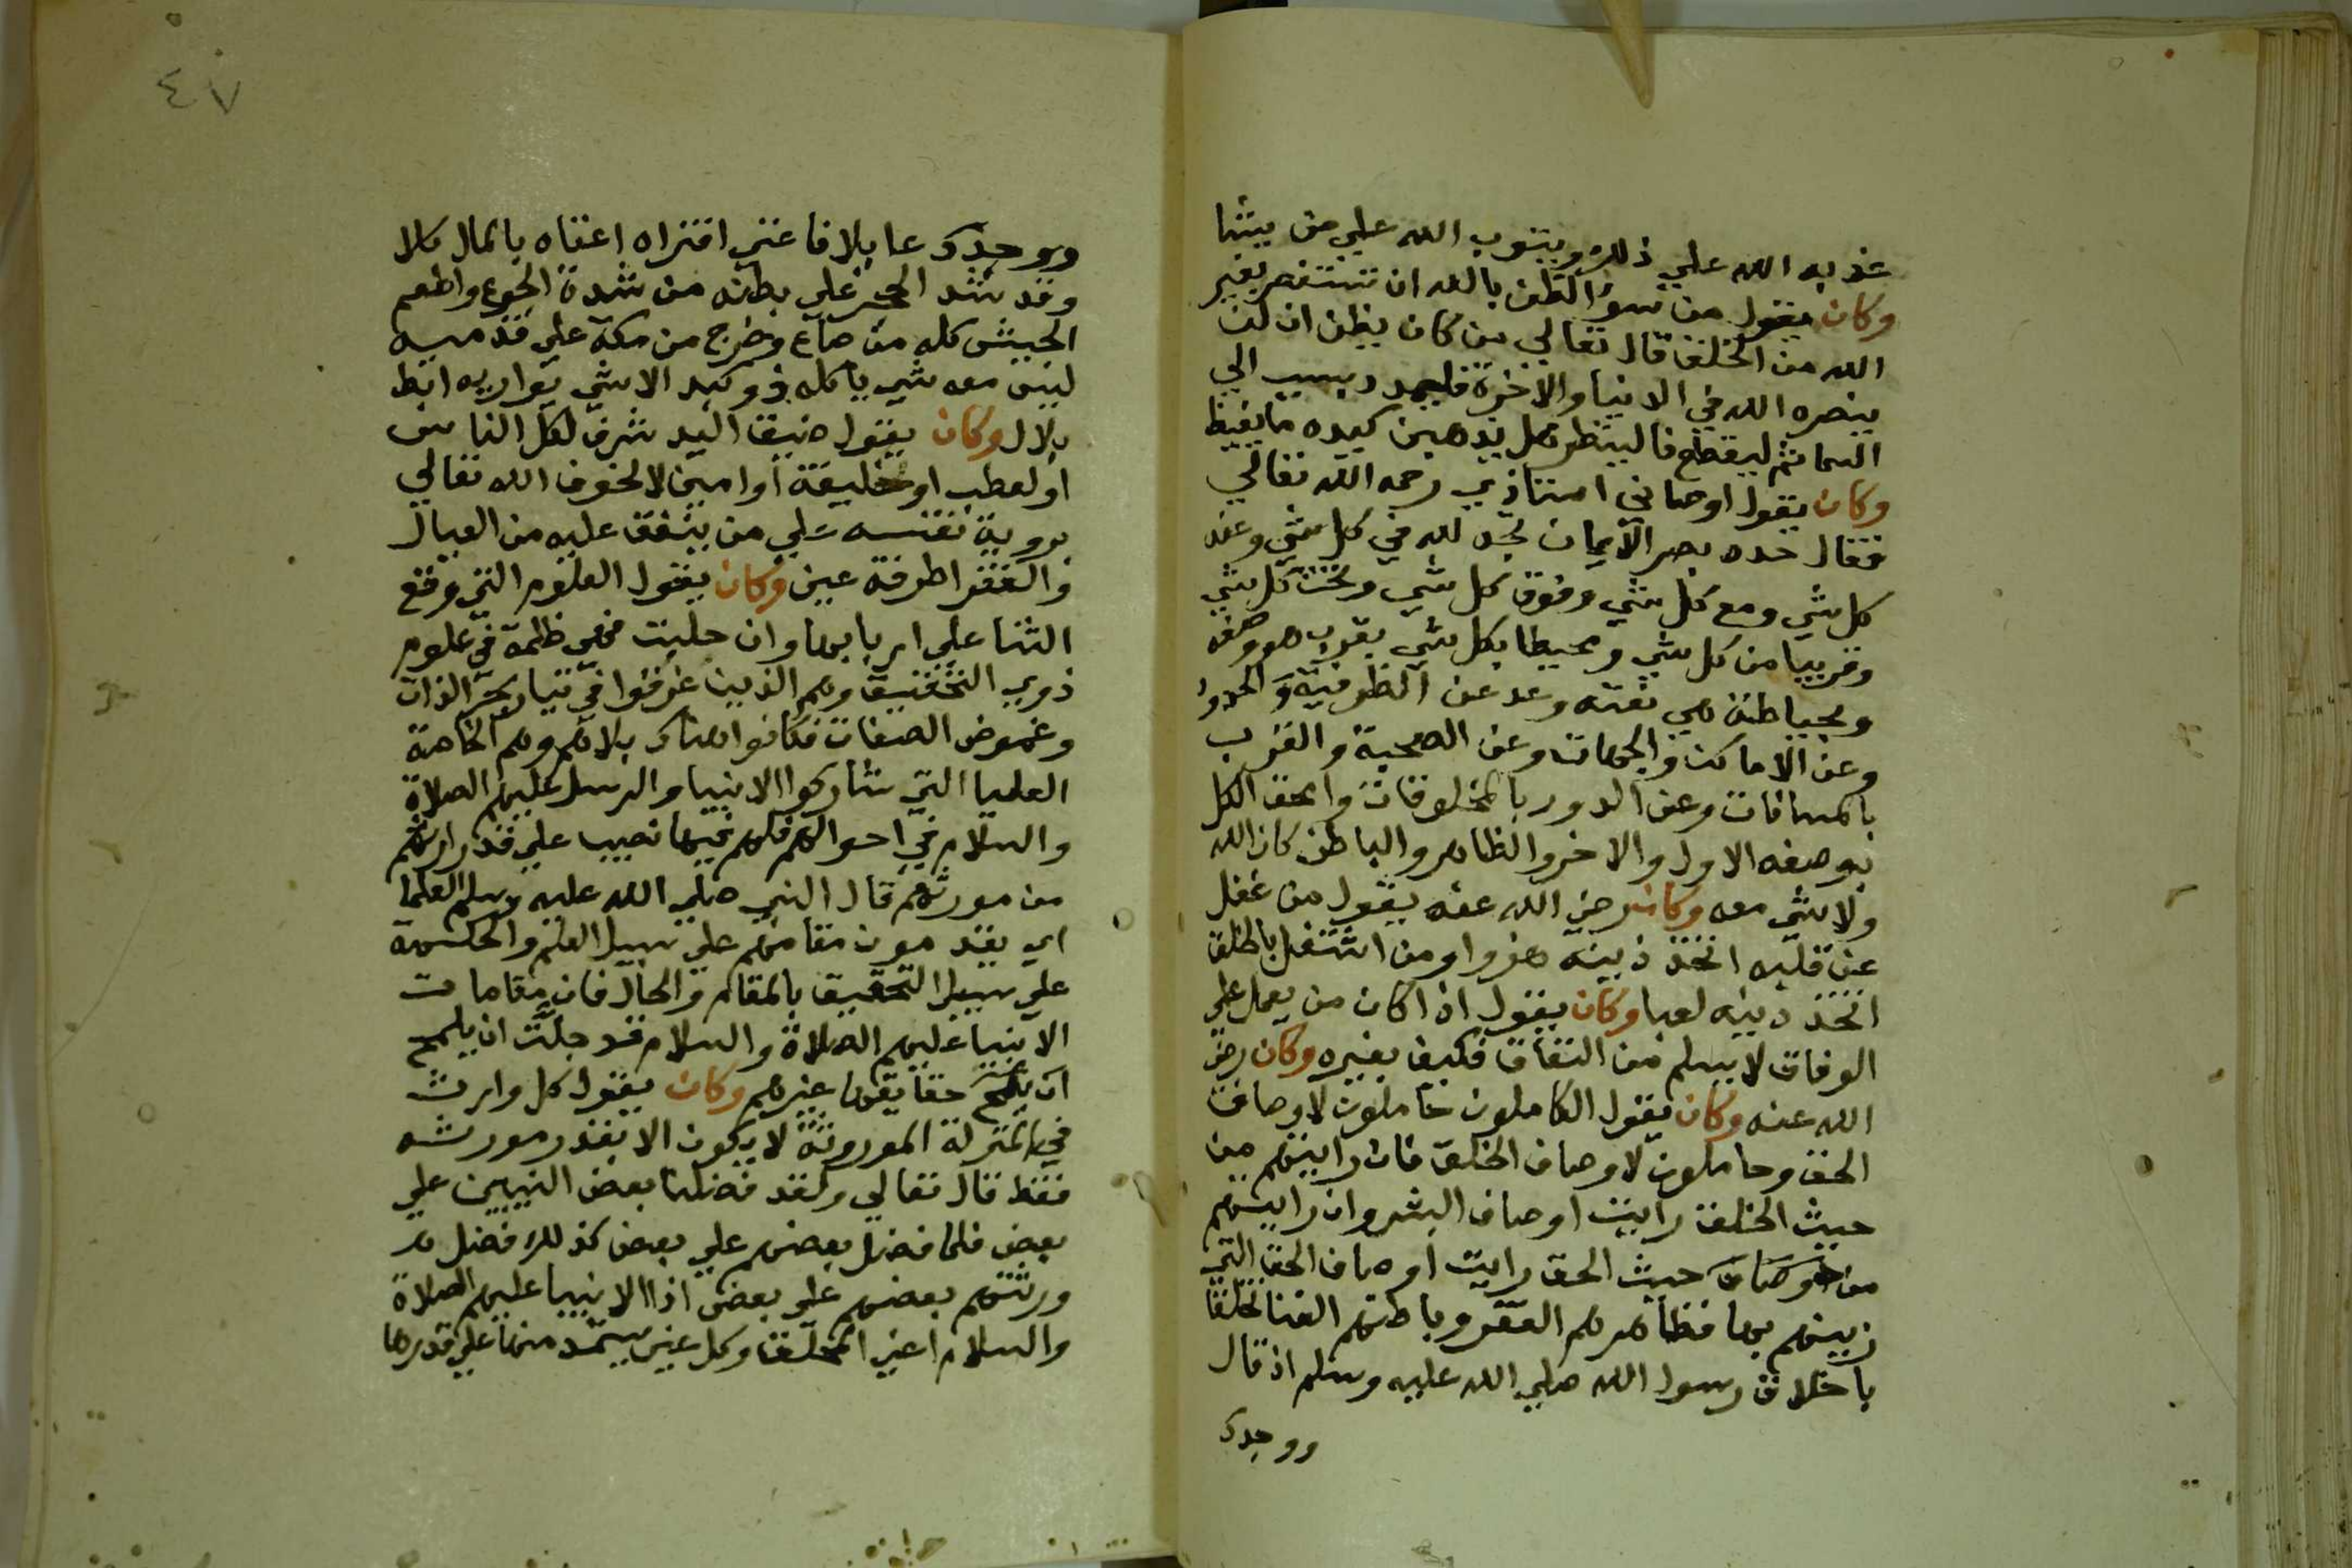 عذبه الله علي ذلك ويتوب الله علي من يشا
وكان يقول من سوء الظن بالله ان تستنصر بغير
الله من الخلق قال تعالي من كان يظن ان لن
ينصره الله في الدنيا والاخرة فليمدد بسبب الي
السما ثم ليقطع فالينظر هل يذهبن كيده ما يغيظ
وكان يقول اوصاني استاذي رحمه الله تعالي
فقال حدد بصر الايمان تجد لله في كل شي وعند
كل شي ومع كل شي وفوق كل شي وتحت كل شي
وقريبا من كل شي ومحيطا بكل شي بقرب هو وصفه
وبحياطة هي نعته وعد عن الظرفية والحدود
وعن الاماكن والجهات وعن الصحبة والقرب
بالمسافات وعن الدور بالمخلوقات وامحق الكل
بوصفه الاول والاخر والظاهر والباطن كان الله
ولا شي معه وكان رضي الله عنه يقول من غفل
عن قلبه اتخذ دينه هزوا ومن اشتغل بالخلق
اتخذ دينه لعبا وكان يقول اذا كان من يعمل علي
الوفاق لا يسلم من النفاق فكيف بغيره وكان رضي
الله عنه وكان يقول الكاملون حاملون لاوصاف
الحق وحاملون لاوصاف الخلق فان رايتهم من
حيث الخلق رايت اوصاف البشر وان رايتهم
من حيث الحق رايت اوصاف الحق التي
زينهم بها فظاهرهم الفقر وباطنهم الغنا تخلقا
باخلاق رسول الله صلي الله عليه وسلم اذ قال
ووجدك
٤٧
ووجدك عايلا فاغني افتراه اغناه بالمال كلا
وقد شد الحجر علي بطنه من شدة الجوع واطعم
الجيش كله من صاع وخرج من مكة علي قدميه
ليس معه شي ياكله ذو كبد الا شي يواريه ابط
بلال وكان يقول ضيق اليد شرف لكل الناس
او لقطب او خليفة او امين لا لخوف الله تعالي
بروية نفسه علي من ينفق عليه من العيال
والفقرا طرفة عين وكان يقول العلوم التي وقع
الثنا علي اربابها وان جلت فهي ظلمة في علوم
ذوي التحقيق وهم الذين غرقوا في تيار بحر الذات
وغموض الصفات فكانوا هناك بلاهم وهم الخاصة
العليا التي شاركوا الانبيا والرسل عليهم الصلاة
والسلام في احوالهم فلهم فيها نصيب علي قدر ارثهم
من مورثهم قال النبي صلي الله عليه وسلم العلما
اي يقدمون مقامهم علي سبيل العلم والحكمة
علي سبيل التحقيق بالمقام والحال فان مقامات
الانبيا عليهم الصلاة والسلام قد جلت ان يلمح
ان يلمح حقايقها غيرهم وكان يقول كل وارث
في المنزلة الموروثة لا يكون الا بقدر مورثه
فقط قال تعالي ولقد فضلنا بعض النبيين علي
بعض فلما فضل بعضهم علي بعض كذلك فضل
ورثتهم بعضهم علي بعض اذ الانبيا عليهم الصلاة
والسلام اعين الحق وكل عين يستمد منها علي قدرها